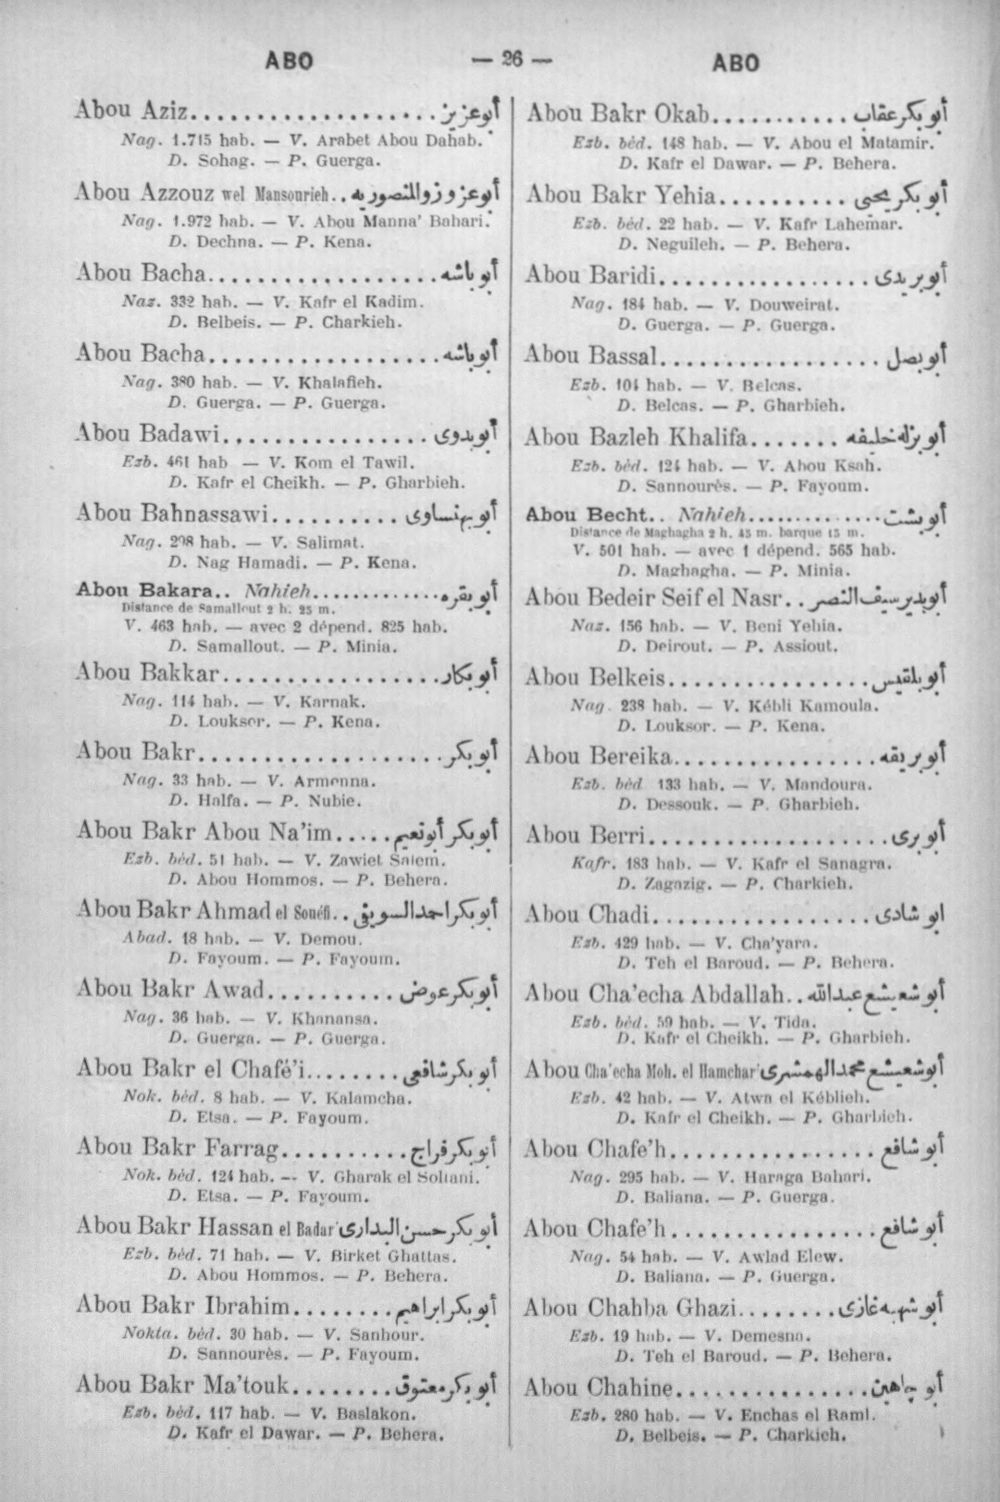 ABO — 26 — ABO
Abou Aziz.................. أبو عزيز
Nag. 1.715 hab. — V. Arabet Abou Dahab.
D. Sohag. — P. Guerga.
Abou Azzouz wel Mansourieh.. أبو عزوز والمنصوريه
Nag. 1.972 hab. — V. Abou Manna' Bahari.
D. Dechna. — P. Kena.
Abou Bacha.................. أبو باشه
Naz. 332 hab. — V. Kafr el Kadim.
D. Belbeis. — P. Charkieh.
Abou Bacha.................. أبو باشه
Nag. 380 hab. — V. Khalafieh.
D. Guerga. — P. Guerga.
Abou Badawi................ أبو بدوى
Ezb. 461 hab — V. Kom el Tawil.
D. Kafr el Cheikh. — P. Gharbieh.
Abou Bahnassawi.......... أبو بهنساوى
Nag. 298 hab. — V. Salimat.
D. Nag Hamadi. — P. Kena.
Abou Bakara.. Nahieh............. أبو بقره
Distance de Samallout 2 h. 25 m.
V. 463 hab. — avec 2 dépend. 825 hab.
D. Samallout. — P. Minia.
Abou Bakkar................. أبو بكار
Nag. 114 hab. — V. Karnak.
D. Louksor. — P. Kena.
Abou Bakr................... أبو بكر
Nag. 33 hab. — V. Armenna.
D. Halfa. — P. Nubie.
Abou Bakr Abou Na'im..... أبو بكر أبو نعيم
Ezb. béd. 51 hab. — V. Zawiet Salem.
D. Abou Hommos. — P. Behera.
Abou Bakr Ahmad el Souéfi.. أبو بكر احمد السويفى
Abad. 18 hab. — V. Demou.
D. Fayoum. — P. Fayoum.
Abou Bakr Awad.......... أبو بكر عوض
Nag. 36 hab. — V. Khanansa.
D. Guerga. — P. Guerga.
Abou Bakr el Chafé'i........ أبو بكر شافعى
Nok. béd. 8 hab. — V. Kalamcha.
D. Etsa. — P. Fayoum.
Abou Bakr Farrag.......... أبو بكر فراج
Nok. béd. 124 hab. — V. Gharak el Soltani.
D. Etsa. — P. Fayoum.
Abou Bakr Hassan el Badar أبو بكر حسن البدارى
Ezb. béd. 71 hab. — V. Birket Ghattas.
D. Abou Hommos. — P. Behera.
Abou Bakr Ibrahim........ أبو بكر ابراهيم
Nokta. béd. 30 hab. — V. Sanhour.
D. Sannourès. — P. Fayoum.
Abou Bakr Ma'touk........ أبو بكر معتوق
Ezb. béd. 117 hab. — V. Baslakon.
D. Kafr el Dawar. — P. Behera.
Abou Bakr Okab........... أبو بكر عقاب
Ezb. béd. 148 hab. — V. Abou el Matamir.
D. Kafr el Dawar. — P. Behera.
Abou Bakr Yehia.......... أبو بكر يحيى
Ezb. béd. 22 hab. — V. Kafr Lahemar.
D. Neguileh. — P. Behera.
Abou Baridi................ أبو بريدى
Nag. 184 hab. — V. Douweirat.
D. Guerga. — P. Guerga.
Abou Bassal................. أبو بصل
Ezb. 101 hab. — V. Belcas.
D. Belcas. — P. Gharbieh.
Abou Bazleh Khalifa....... أبو بزله خليفه
Ezb. béd. 124 hab. — V. Abou Ksah.
D. Sannourès. — P. Fayoum.
Abou Becht.. Nahieh.............. أبو بشت
Distance de Maghagha 2 h. 45 m. barque 15 m.
V. 501 hab. — avec 1 dépend. 565 hab.
D. Maghagha. — P. Minia.
Abou Bedeir Seif el Nasr.. أبو بدير سيف النصر
Naz. 156 hab. — V. Beni Yehia.
D. Deirout. — P. Assiout.
Abou Belkeis................ أبو بلقيس
Nag. 238 hab. — V. Kébli Kamoula.
D. Louksor. — P. Kena.
Abou Bereika................ أبو بريقه
Ezb. béd 133 hab. — V. Mandoura.
D. Dessouk. — P. Gharbieh.
Abou Berri................... أبو برى
Kafr. 183 hab. — V. Kafr el Sanagra.
D. Zagazig. — P. Charkieh.
Abou Chadi................. ابو شادى
Ezb. 429 hab. — V. Cha'yara.
D. Teh el Baroud. — P. Behera.
Abou Cha'echa Abdallah.. أبو شعيشع عبدالله
Ezb. béd. 59 hab. — V. Tida.
D. Kafr el Cheikh. — P. Gharbieh.
Abou Cha'echa Moh. el Hamchar' أبو شعيشع محمد الهمشرى
Ezb. 42 hab. — V. Atwa el Kéblieh.
D. Kafr el Cheikh. — P. Gharbieh.
Abou Chafe'h................ أبو شافع
Nag. 295 hab. — V. Haraga Bahari.
D. Baliana. — P. Guerga.
Abou Chafe'h................ أبو شافع
Nag. 54 hab. — V. Awlad Elew.
D. Baliana. — P. Guerga.
Abou Chahba Ghazi........ أبو شهبه غازى
Ezb. 19 hab. — V. Demesna.
D. Teh el Baroud. — P. Behera.
Abou Chahine............... أبو چاهين
Ezb. 280 hab. — V. Enchas el Raml.
D. Belbeis. — P. Charkieh.